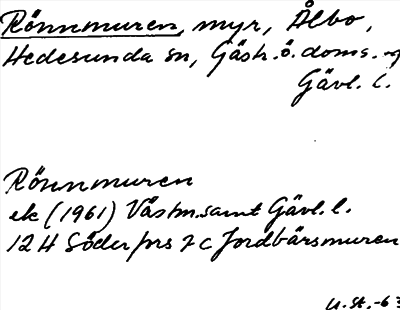 Rönnmuren, myr, Ålbo,
Hedesunda sn, Gästr. ö. doms. o
Gävl. l.
Rönnmuren
ek (1961) Västm. samt Gävl. l.
12 H Söderfors 7 c Jordbärsmuren
U. St. -63